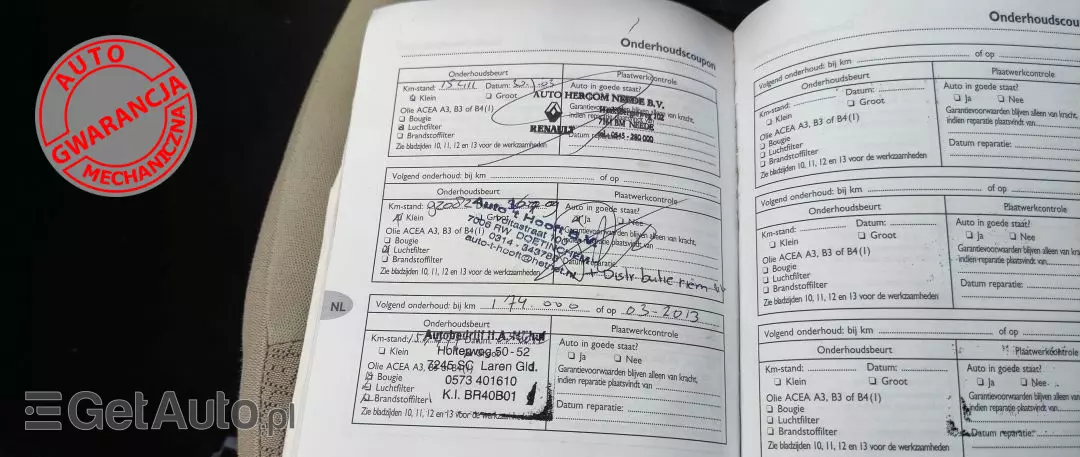 AUTO
GWARANCJA
MECHANICZNA
Onderhoudscoupon
Onderhoudsbeurt
Plaatwerkcontrole
Km-stand: Datum:
Auto in goede staat?
Klein Groot
AUTO HERCOM NEEDE B.V.
Garantievoorwaarden blijven alleen van kracht,
indien reparatie plaatsvindt van
Olie ACEA A3, B3 of B4(1)
Bougie
Luchtfilter
Brandstoffilter
RENAULT
7161 BM NEEDE
Tel. 0545 - 280000
Datum reparatie:
Zie bladzijden 10, 11, 12 en 13 voor de werkzaamheden
Volgend onderhoud: bij km of op
Onderhoudsbeurt
Plaatwerkcontrole
Km-stand:
Auto in goede staat?
Klein
Ja Nee
Auto 't Hooft B.V.
7006 RW DOETINCHEM
0314 - 343788
auto-t-hooft@hetnet.nl
Garantievoorwaarden blijven alleen van kracht,
indien reparatie plaatsvindt van
Olie ACEA A3, B3 of B4(1)
Bougie
Luchtfilter
Brandstoffilter
Datum reparatie:
+ Distributie riem
Zie bladzijden 10, 11, 12 en 13 voor de werkzaamheden
NL
Volgend onderhoud: bij km 174.000 of op 03-2013
Onderhoudsbeurt
Plaatwerkcontrole
Km-stand: Datum:
Auto in goede staat?
Klein
Ja Nee
Autobedrijf
Holterweg 50-52
7245 SC Laren Gld.
0573 401610
K.I. BR40B01
Olie ACEA A3, B3 of B4(1)
Bougie
Luchtfilter
Brandstoffilter
Garantievoorwaarden blijven alleen van kracht,
indien reparatie plaatsvindt van
Datum reparatie:
Zie bladzijden 10, 11, 12 en 13 voor de werkzaamheden
Onderhoudscou
Volgend onderhoud: bij km of op
Onderhoudsbeurt
Plaatwerkcontrole
Km-stand: Datum:
Auto in goede staat?
Klein Groot
Ja Nee
Olie ACEA A3, B3 of B4(1)
Garantievoorwaarden blijven alleen van k
indien reparatie plaatsvindt van
Bougie
Luchtfilter
Brandstoffilter
Datum reparatie:
Zie bladzijden 10, 11, 12 en 13 voor de werkzaamheden
Volgend onderhoud: bij km of op
Onderhoudsbeurt
Plaatwerkcontrole
Km-stand: Datum:
Auto in goede staat?
Klein Groot
Ja Nee
Olie ACEA A3, B3 of B4(1)
Garantievoorwaarden blijven alleen van
indien reparatie plaatsvindt van
Bougie
Luchtfilter
Brandstoffilter
Datum reparatie:
Zie bladzijden 10, 11, 12 en 13 voor de werkzaamheden
Volgend onderhoud: bij km of op
Onderhoudsbeurt
Plaatwerkcontrole
Km-stand: Datum:
Auto in goede staat?
Klein Groot
Ja Nee
Olie ACEA A3, B3 of B4(1)
Garantievoorwaarden blijven alleen van
indien reparatie plaatsvindt van
Bougie
Luchtfilter
Brandstoffilter
Datum reparatie:
Zie bladzijden 10, 11, 12 en 13 voor de werkzaamheden
GetAuto.pl